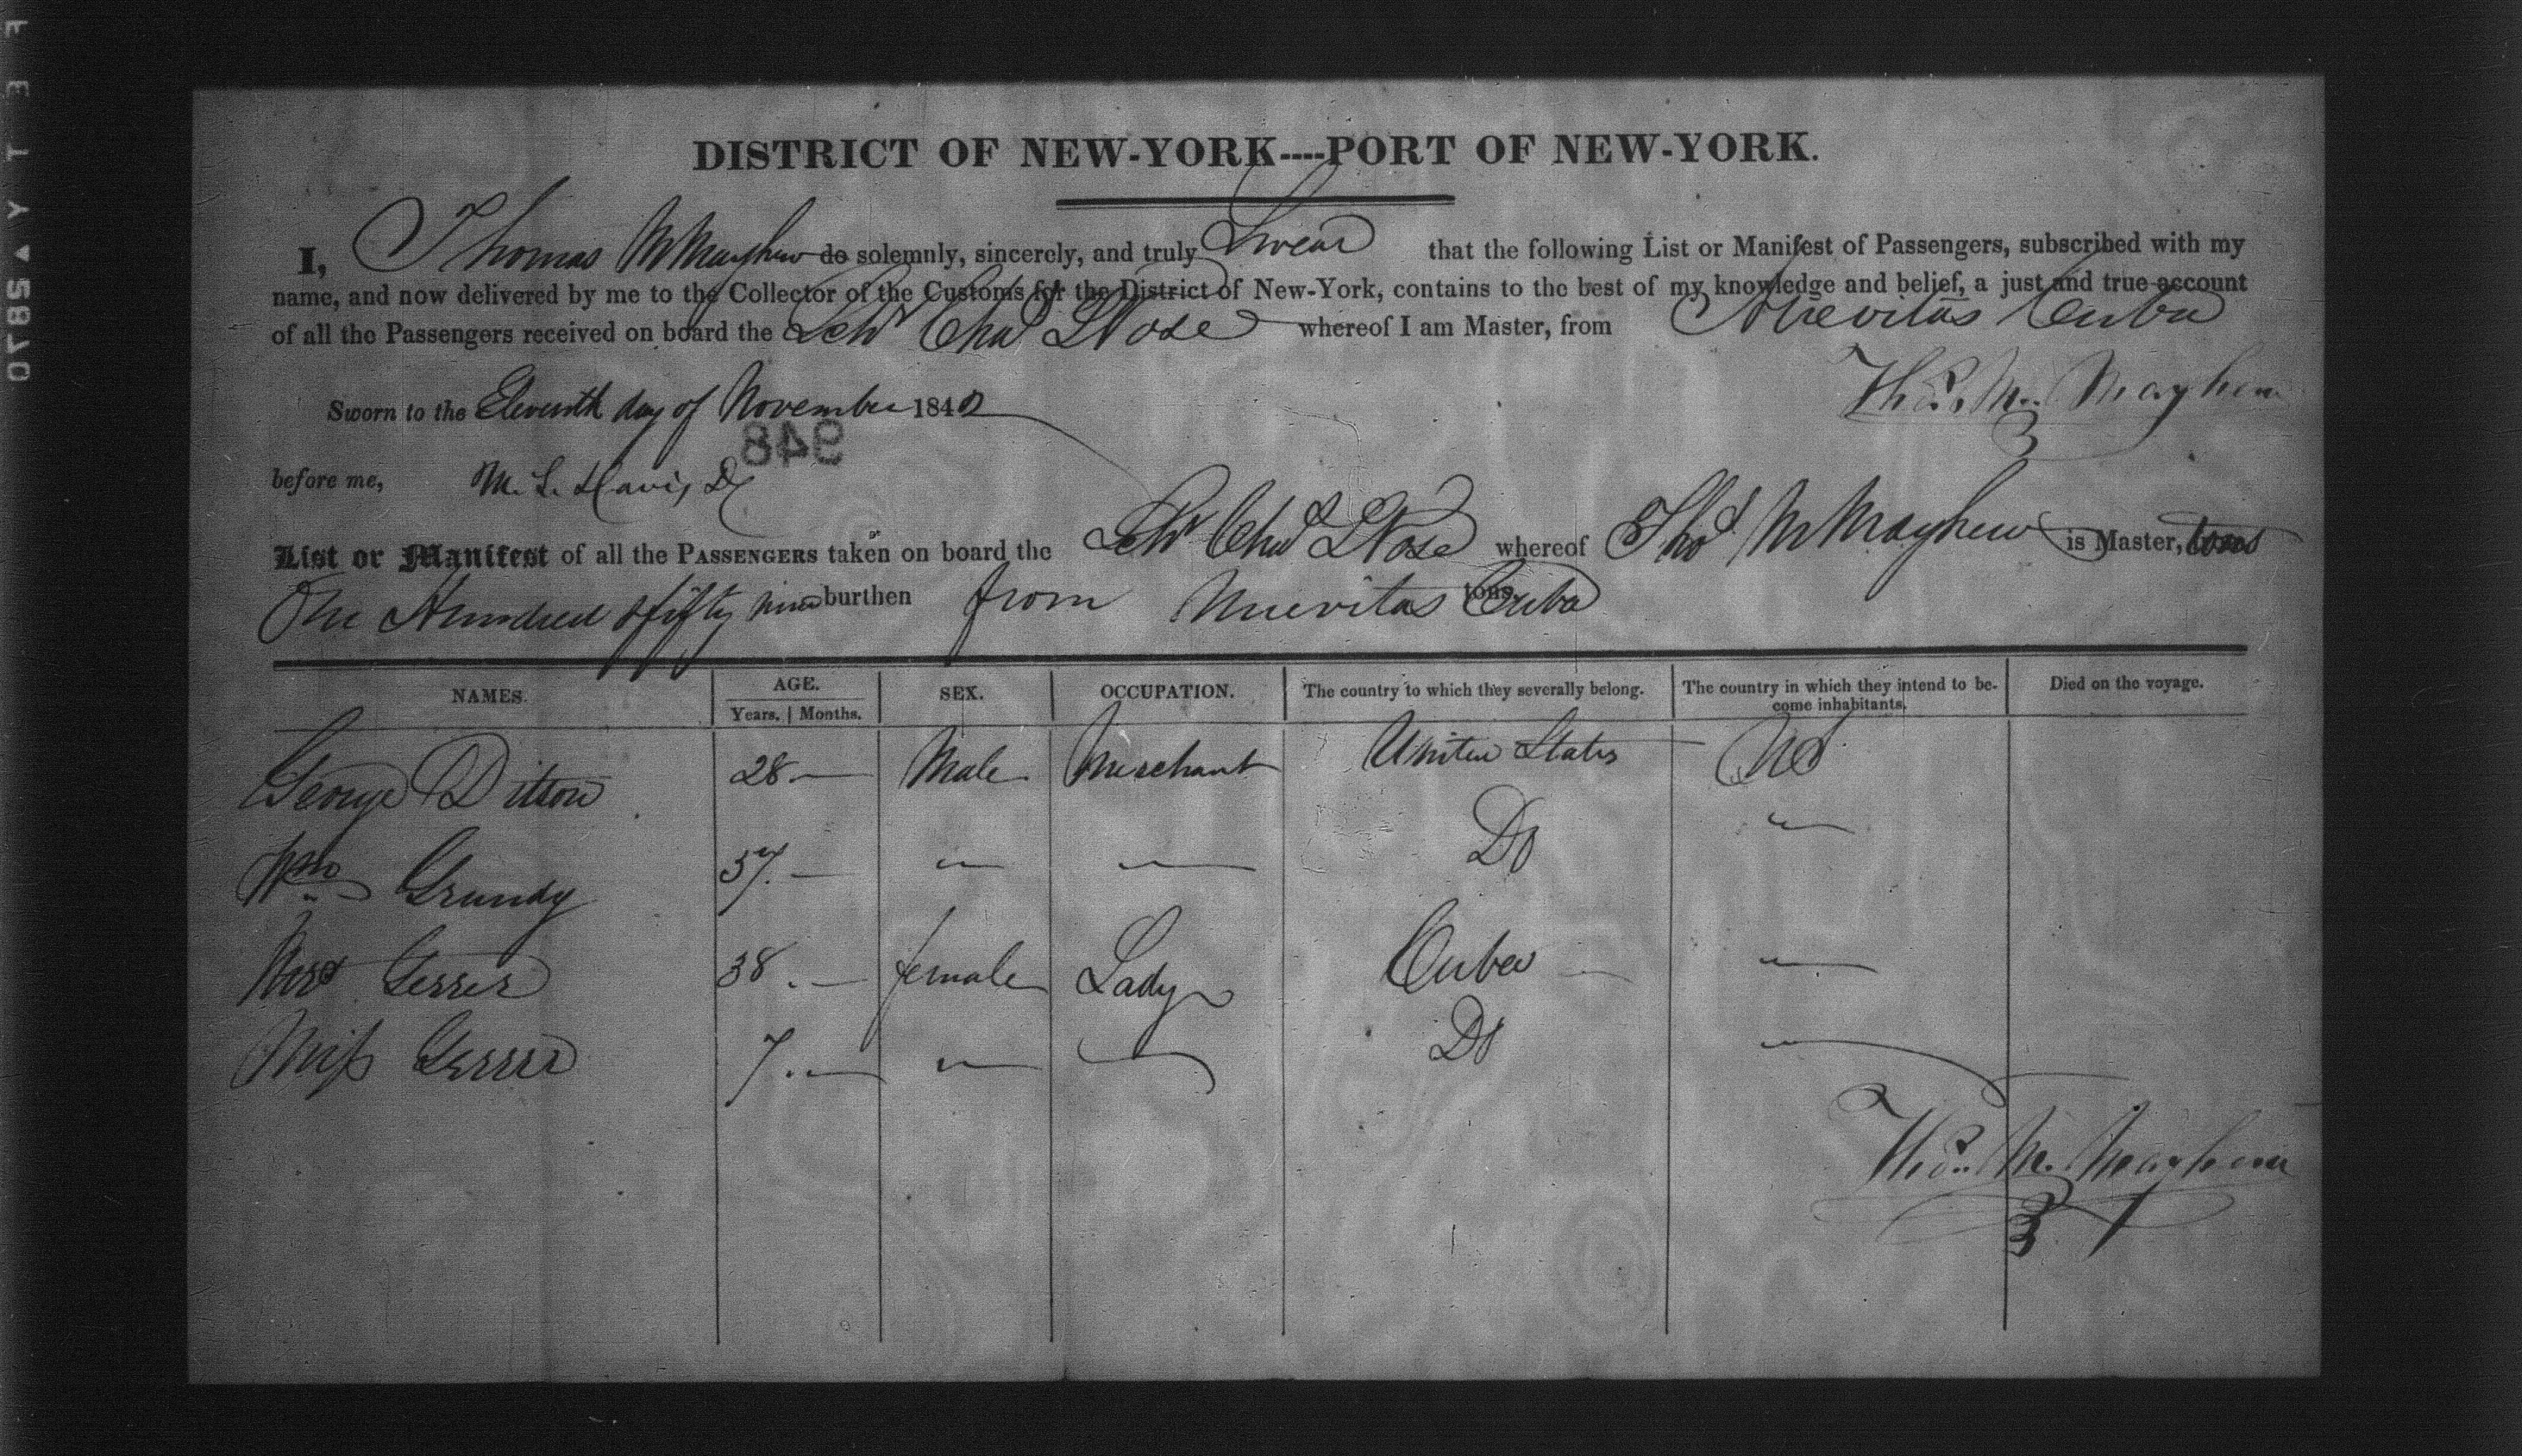 DISTRICT OF NEW-YORK----PORT OF NEW-YORK.
I, Thomas M Mayhew do solemnly, sincerely, and truly Swear that the following List or Manifest of Passengers, subscribed with my
name, and now delivered by me to the Collector of the Customs for the District of New-York, contains to the best of my knowledge and belief, a just and true account
of all the Passengers received on board the Schr Chas whereof I am Master, from Nuevitas Cuba
Thos. M. Mayhew
Sworn to the Eleventh day of November 1842
948
before me, M. L. Davis
List or Manifest of all the PASSENGERS taken on board the Schr Chas whereof Thos M Mayhew is Master, tons
One Hundred & fifty nine burthen from Nuevitas tons Cuba
NAMES. AGE. SEX. OCCUPATION. The country to which they severally belong. The country in which they intend to be- Died on the voyage.
Years. | Months. come inhabitants.
George Ditson 28 — Male Merchant United States US
Wm Grundy 37. — " " Do "
Mrs 38. — female Lady Cuba "
Miss 7. — " " Do "
Thos. M. Mayhew
0785▲YT3F